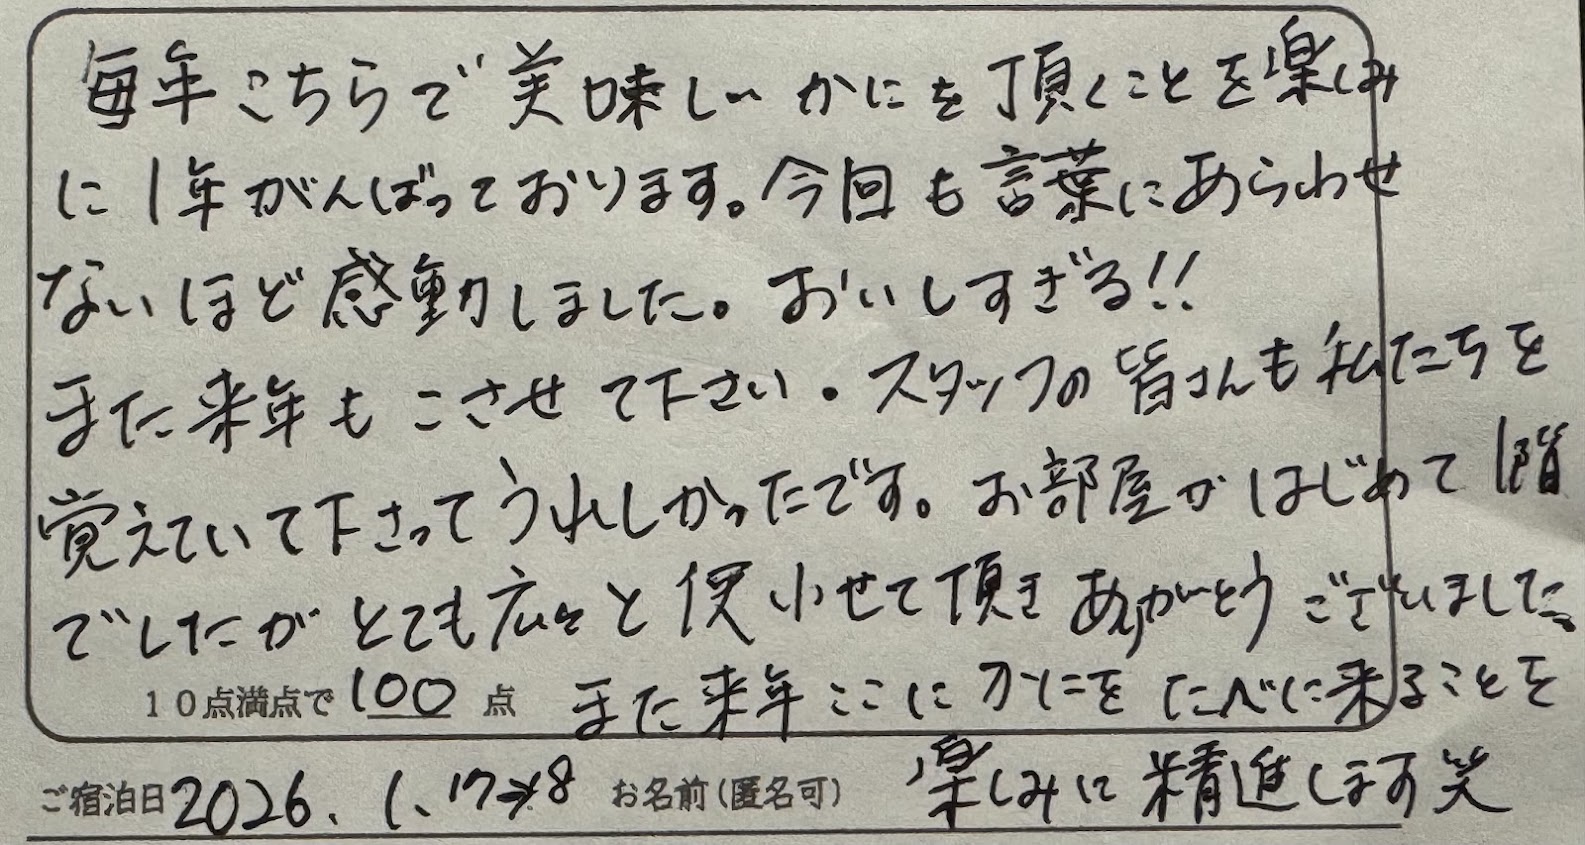 毎年こちらで美味しいかにを頂くことを楽しみ
に1年がんばっております。今回も言葉にあらわせ
ないほど感動しました。おいしすぎる!!
また来年もこさせて下さい。スタッフの皆さんも私たちを
覚えていて下さってうれしかったです。お部屋がはじめて1階
でしたがとても広々と使わせて頂きありがとうございました。
10点満点で100点 また来年ここにかにをたべに来ることを
ご宿泊日2026.1.17→18 お名前(匿名可) 楽しみに精進します笑